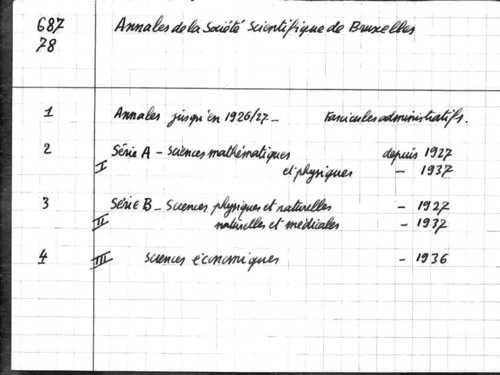 687 Annales de la Société Scientifique de Bruxelles
78
1 Annales jusqu'en 1926/27 - Fascicules administratifs.
2 Série A - Sciences mathématiques depuis 1927
I et physiques - 1937
3 Série B - Sciences physiques et naturelles - 1927
II naturelles et médicales - 1937
4 III Sciences économiques - 1936